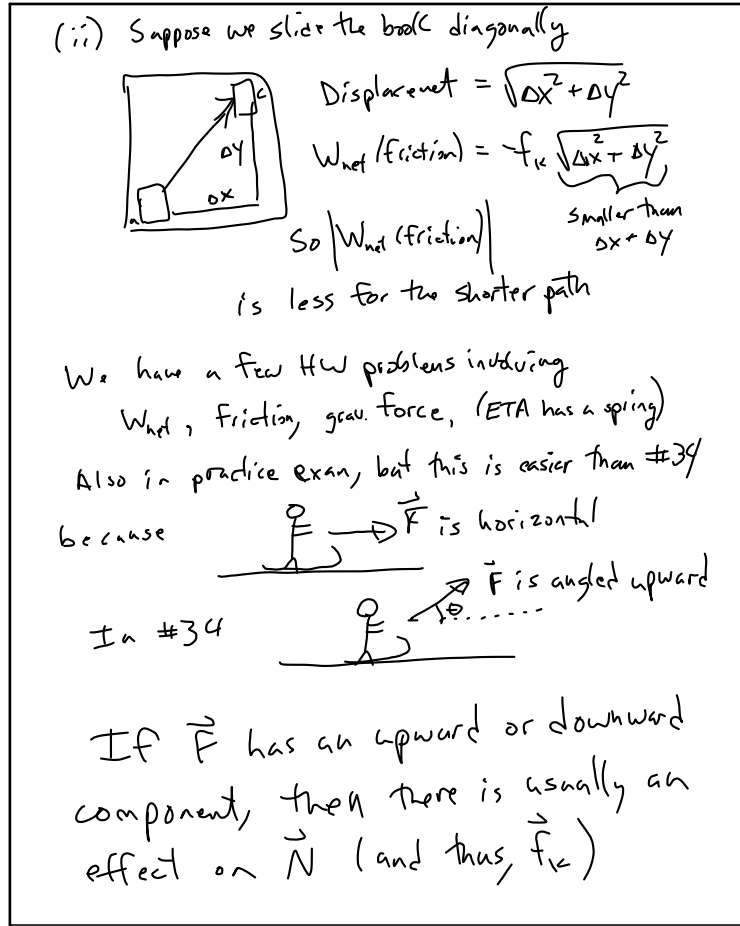 (ii) Suppose we slide the book diagonally
c
Δy
Δx
a
Displacement = √Δx² + Δy²
Wnet (friction) = -fk √Δx² + Δy²
smaller than
Δx + Δy
So |Wnet (friction)|
is less for the shorter path
We have a few HW problems involving
Wnet, friction, grav. force, (ETA has a spring)
Also in practice exam, but this is easier than #34
because
F⃗ is horizontal
F⃗ is angled upward
θ
In #34
If F⃗ has an upward or downward
component, then there is usually an
effect on N⃗ (and thus, f⃗k)